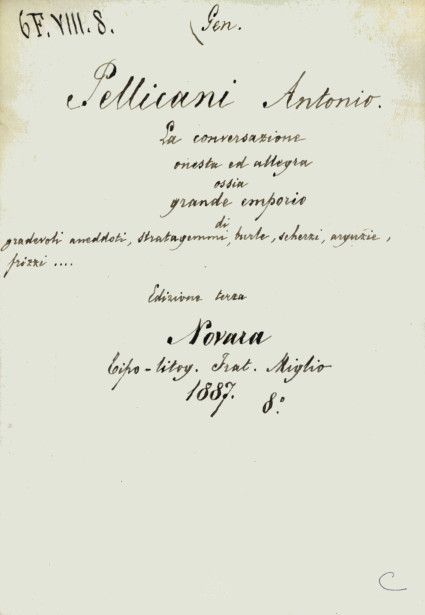 6F.VIII.8.
(Gen.
Pellicani Antonio.
La conversazione
onesta ed allegra
ossia
grande emporio
di
gradevoli aneddoti, stratagemmi, burle, scherzi, arguzie,
frizzi ....
Edizione terza
Novara
Tipo-litog. Frat. Miglio
1887. 8.°
C